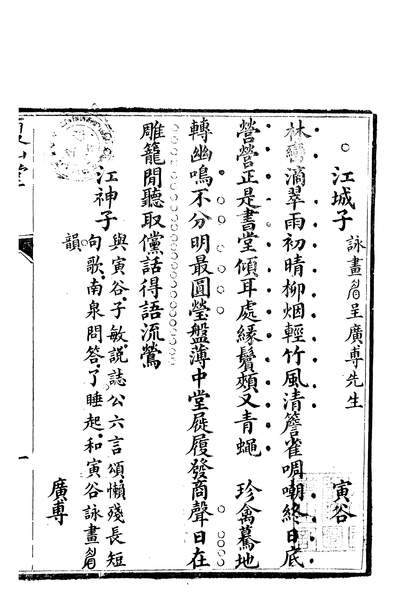 江城子 詠畫眉呈廣尃先生 寅谷
林巒滴翠雨初晴柳烟輕竹風清簷雀啁嘲終日底
營營正是書堂傾耳處緣鬢頰又青蠅 珍禽驀地
轉幽鳴不分明最圓瑩盤薄中堂屣履發商聲日在
雕籠閒聽取儻話得語流鶯
江神子 與寅谷子敏說誌公六言頌懶殘長短
句歌南泉問答了睡起和寅谷詠畫眉
韻 廣尃